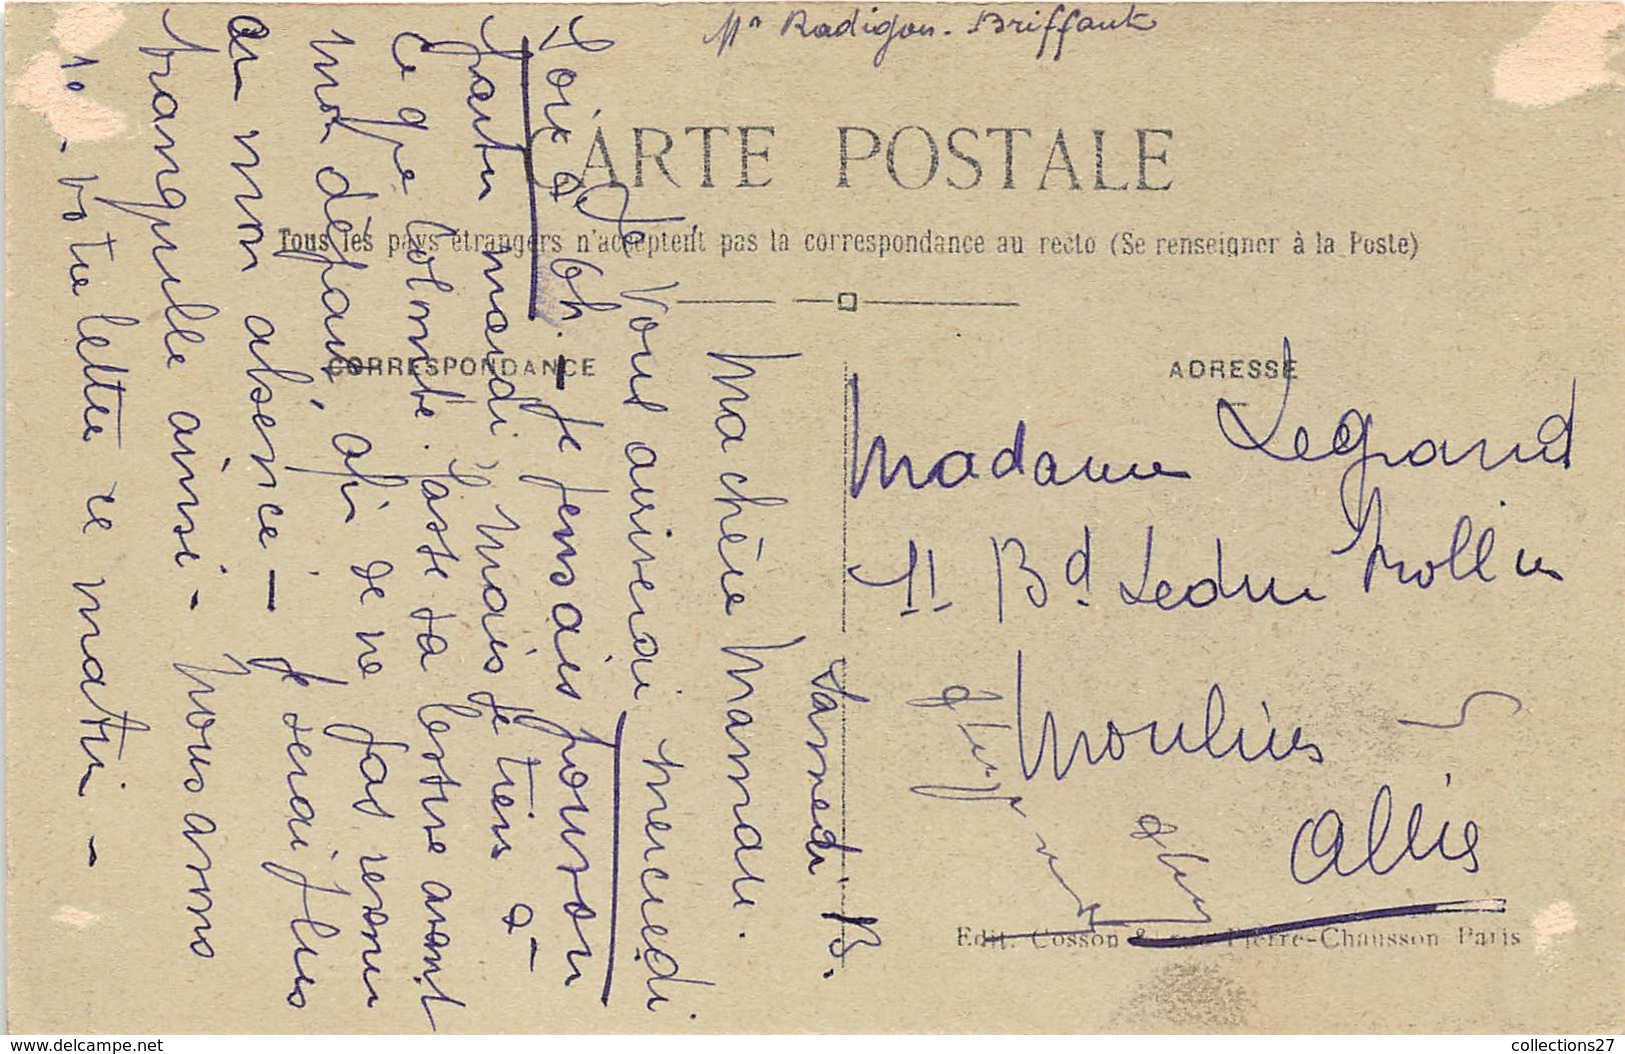 Mn Radigon-Briffaut
CARTE POSTALE
Tous les pays étrangers n'acceptent pas la correspondance au recto (Se renseigner à la Poste)
CORRESPONDANCE
ADRESSE
Samedi 13.
Ma chère Mamade.
Je vous arriverai mercredi
soir à 6h. - Je pensais pouvoir
partir mardi, mais je tiens à
ce que Colombe passe sa lessive avant
mon départ, afin de ne pas revenir
en mon absence - Je serai plus
tranquille ainsi - Nous avons
votre lettre ce matin -
Madame Legrand
11 Bd Ledru Rollin
Moulins
Allier
Edit. Cosson Pierre-Chausson Paris
www.delcampe.net
collections27